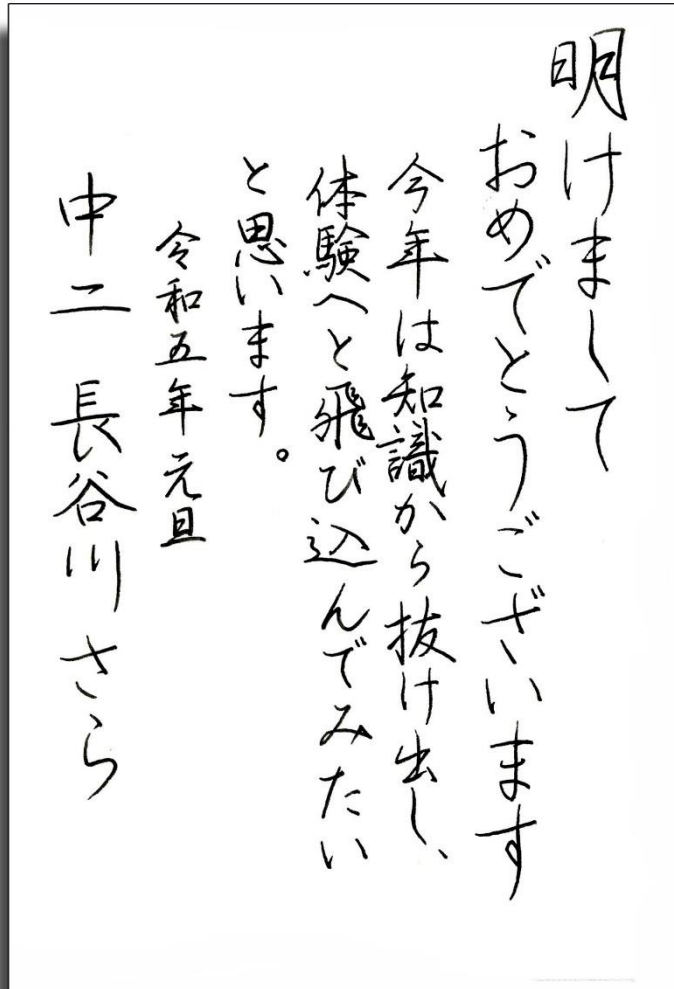 明けまして
おめでとうございます
今年は知識から抜け出し、
体験へと飛び込んでみたい
と思います。
令和五年元旦
中二 長谷川さら